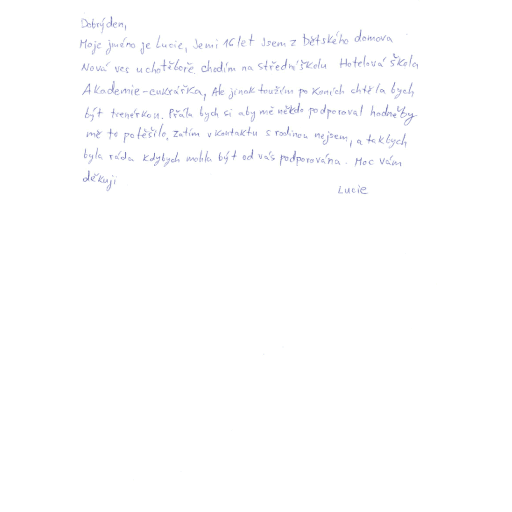 Dobrý den,
Moje jméno je Lucie, Jemi 16 let Jsem z Dětského domova
Nová ves u chotěboře chodím na střední školu Hotelová škola
Akademie-cukrářka, Ale jinak toužím po Koních chtěla bych
být trenérkou. Přála bych si aby mě někdo podporoval hodně by
mě to potěšilo, zatím v kontaktu s rodinou nejsem, a tak bych
byla ráda Kdybych mohla být od vás podporována. Moc vám
děkuji
Lucie